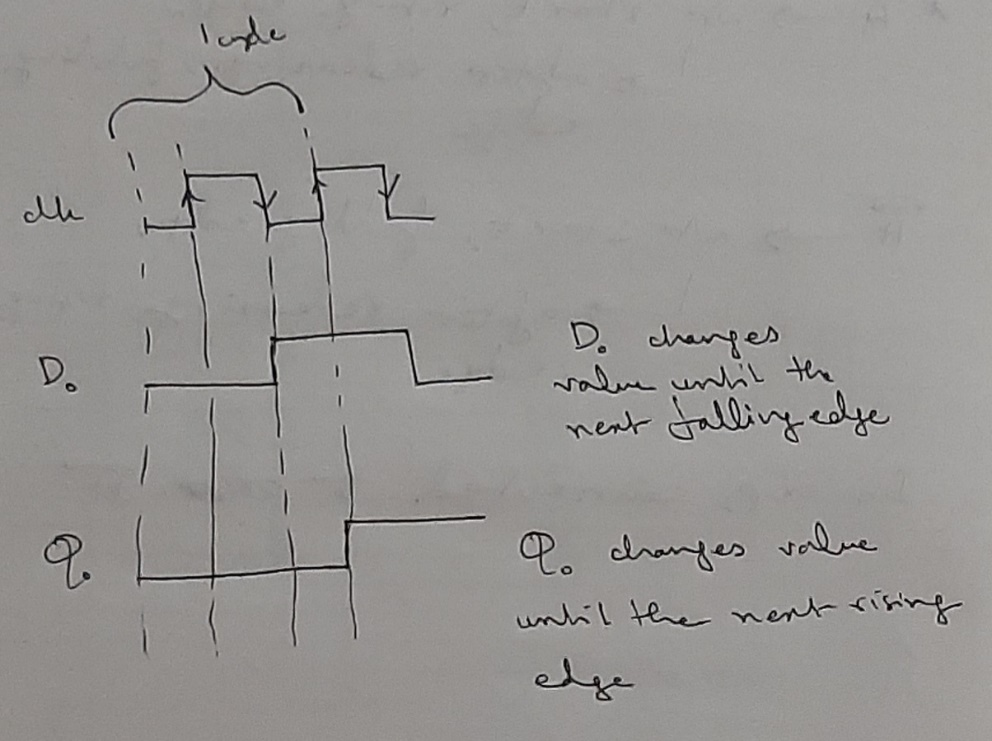 1 cycle
clk
D₀
D₀ changes
value until the
next falling edge
Q₀
Q₀ changes value
until the next rising
edge